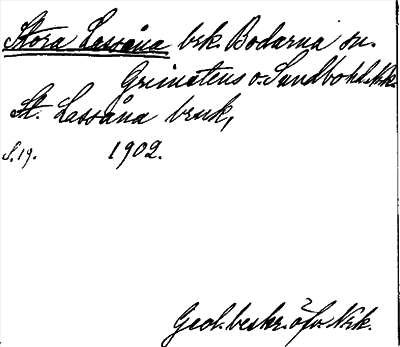 Stora Lassåna brk. Bodarna sn.
Grimstens o. Sundbohd. Nrk.
St. Lassåna bruk,
S. 19. 1902.
Geol. beskr. öfv. Nrk.